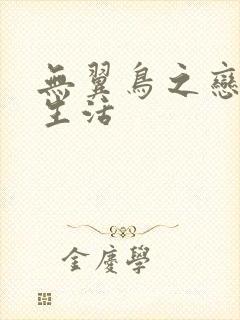 無翼鳥之戀
生活
金慶學